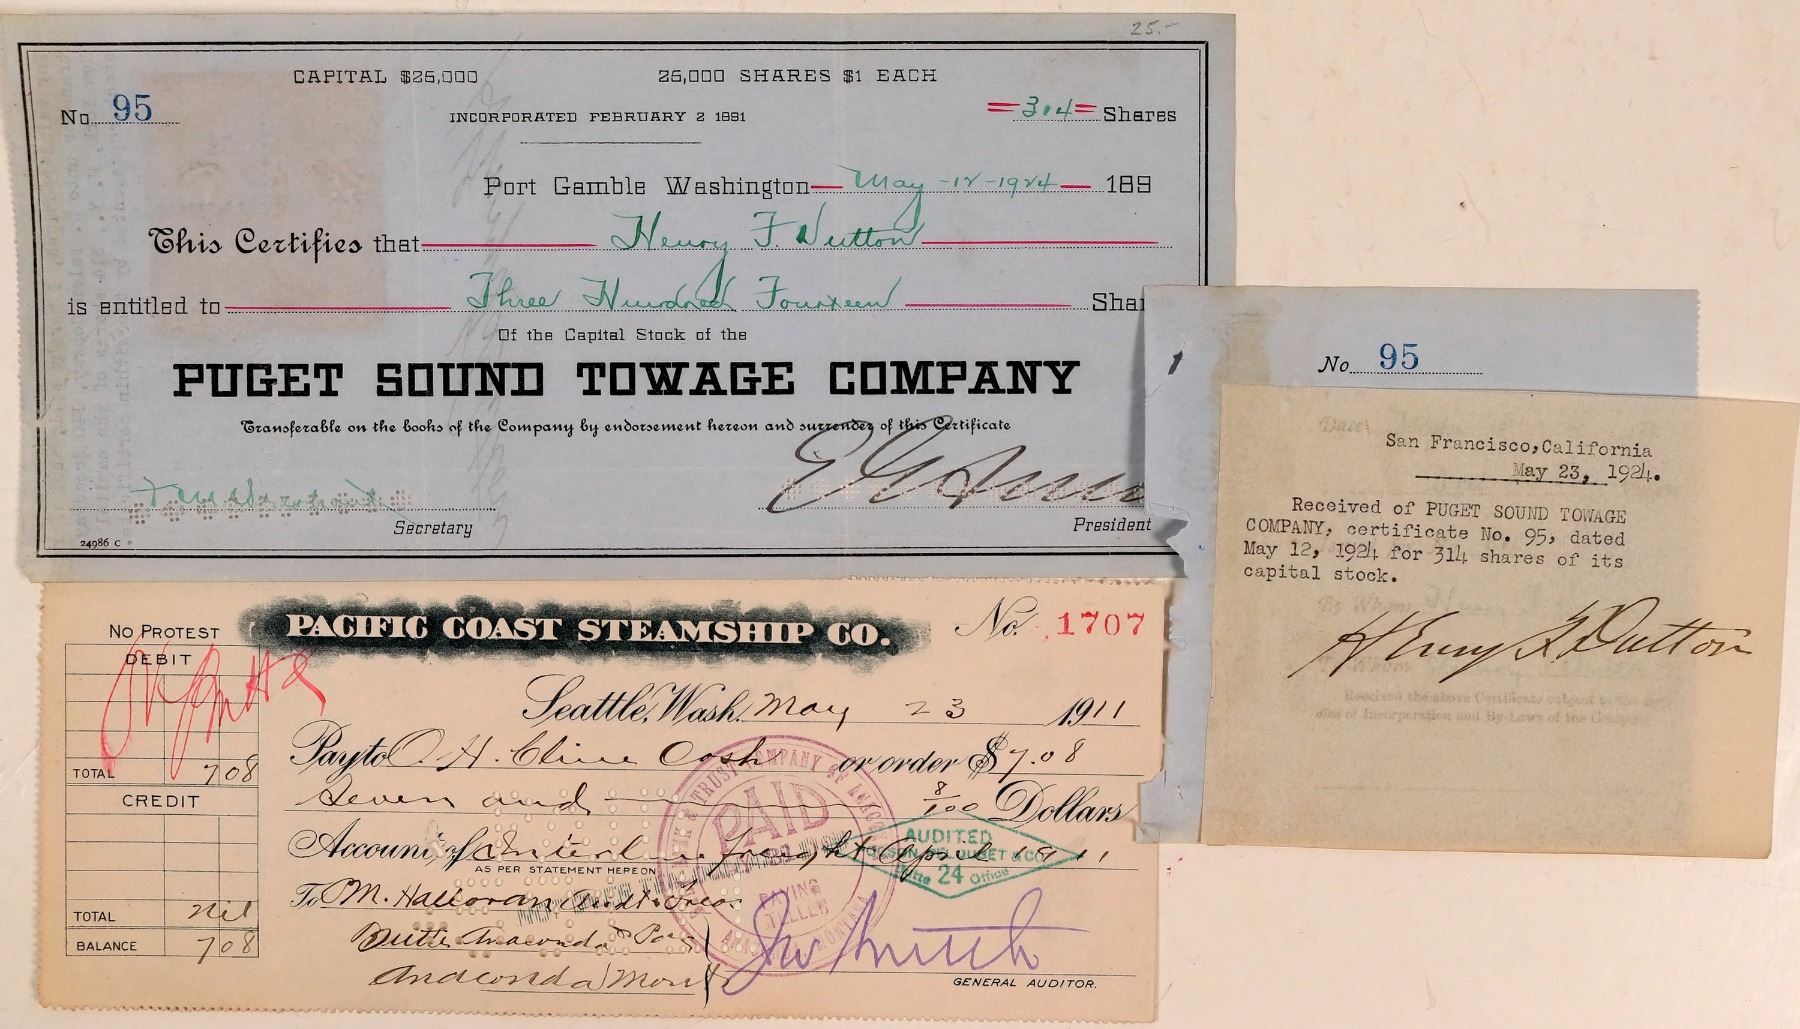 25.-
CAPITAL $25,000 25,000 SHARES $1 EACH
No. 95 INCORPORATED FEBRUARY 2 1891 =314= Shares
Port Gamble Washington May -12-1924 189
This Certifies that Henry F. Dutton
is entitled to Three Hundred Fourteen Shar
Of the Capital Stock of the
PUGET SOUND TOWAGE COMPANY
Transferable on the books of the Company by endorsement hereon and surrender of this Certificate
E G Ames
Secretary President
24986 C
No. 95
Date
San Francisco, California
May 23, 1924.
Received of PUGET SOUND TOWAGE
COMPANY, certificate No. 95, dated
May 12, 1924 for 314 shares of its
capital stock.
By Whom
Henry F. Dutton
To Whom
Received the above Certificate subject to the
of Incorporation and By-Laws of the
PACIFIC COAST STEAMSHIP CO. No. 1707
NO PROTEST
DEBIT
TOTAL 7 08
CREDIT
TOTAL nil
BALANCE 7 08
Seattle, Wash. May 23 1911
Pay to O. H. Cline Cash or order $7.08
Seven and 8/100 Dollars
Account of Interline freight April 1911
AS PER STATEMENT HEREON
To M. Halloran Aud & Treas
Butte Anaconda & Pac
Anaconda Mont
GENERAL AUDITOR.
TRUST COMPANY OF
PAID
PAYING
TELLER
MONTANA
AUDITED
24 Office